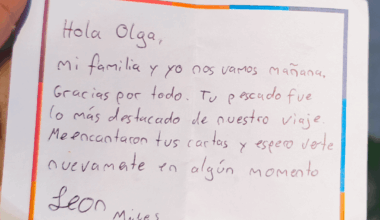 Hola Olga,
Mi familia y yo nos vamos mañana.
Gracias por todo. Tu pescado fue
lo más destacado de nuestro viaje.
Me encantaron tus cartas y espero verte
nuevamente en algún momento
Leon